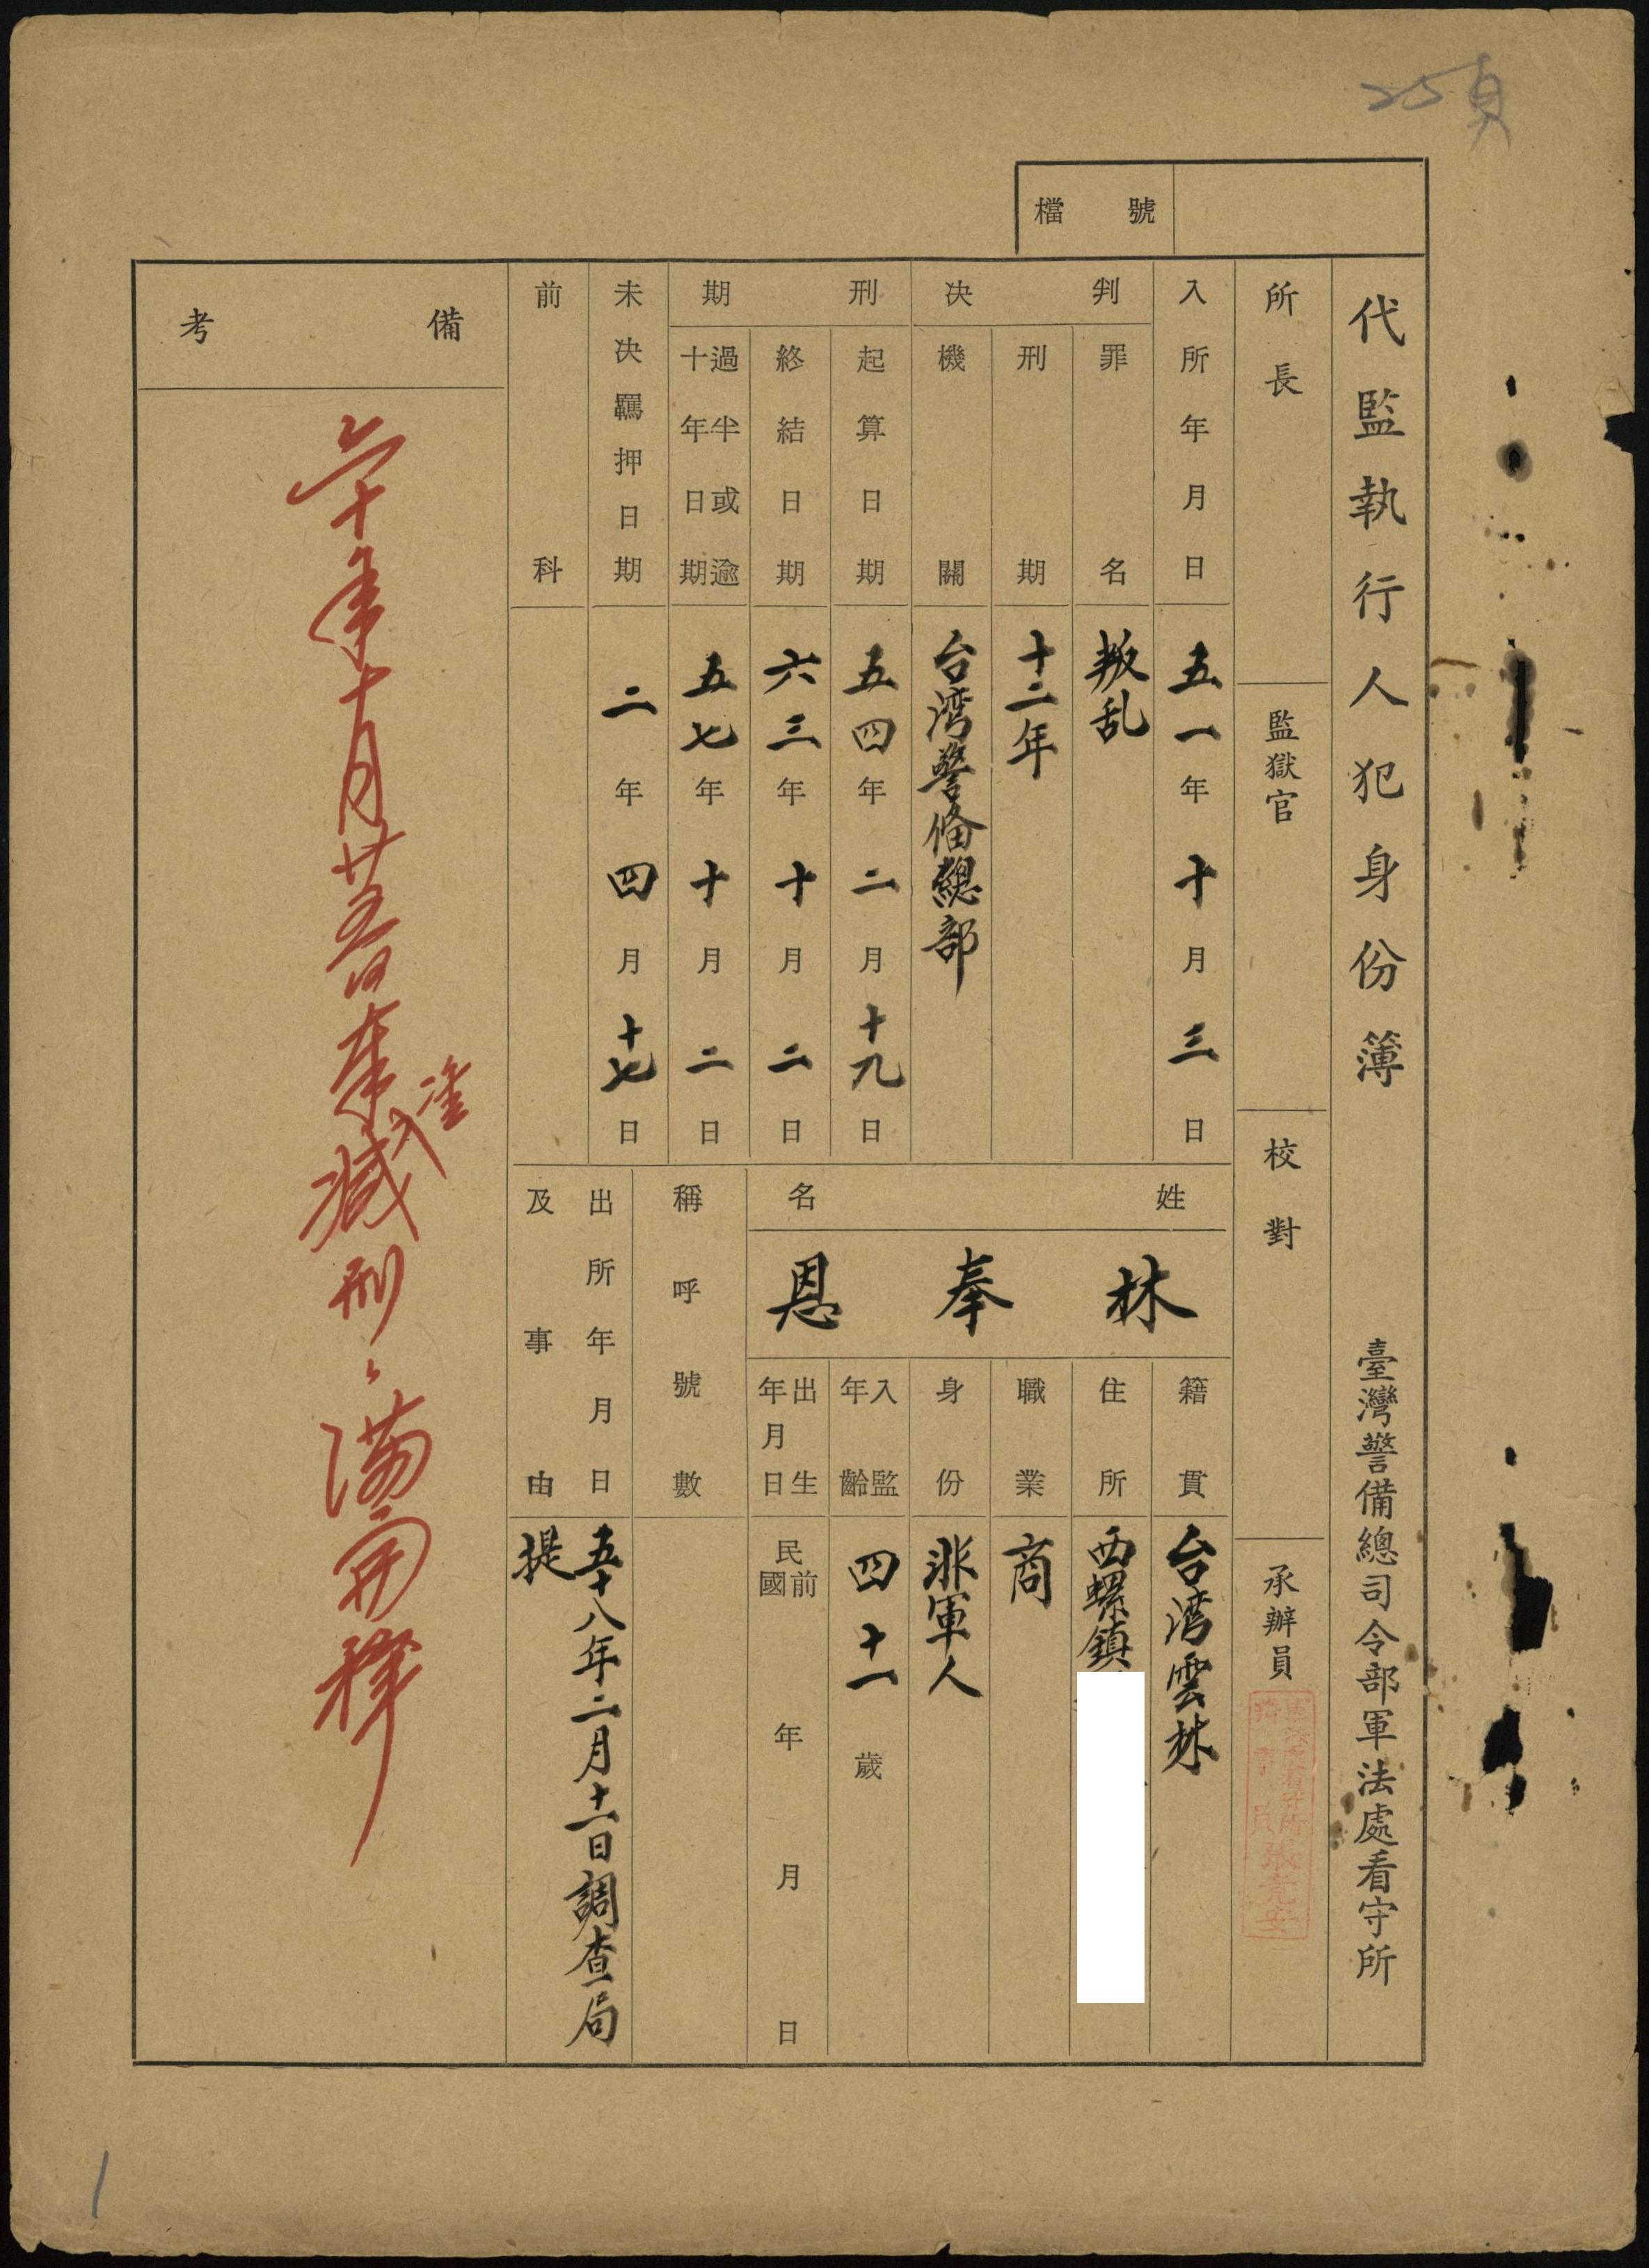 25頁
檔號
代監執行人犯身份簿 臺灣警備總司令部軍法處看守所
所長
監獄官
校對
承辦員
入所年月日 五一年十月三日
判決
罪名 叛乱
刑期 十二年
機關 台湾警備總部
刑期
起算日期 五四年二月十九日
終結日期 六三年十月二日
過半或逾十年日期 五七年十月二日
未決羈押日期 二年四月十七日
前科
姓名
林奉恩
籍貫 台湾雲林
住所 西螺鎮
職業 商
身份 非軍人
入監年齡 四十一歲
出生年月日 民國前 年 月 日
稱呼號數
出所年月日及事由 五十八年二月十一日調查局
提
備考
六十年十月廿
減刑、滿開釋